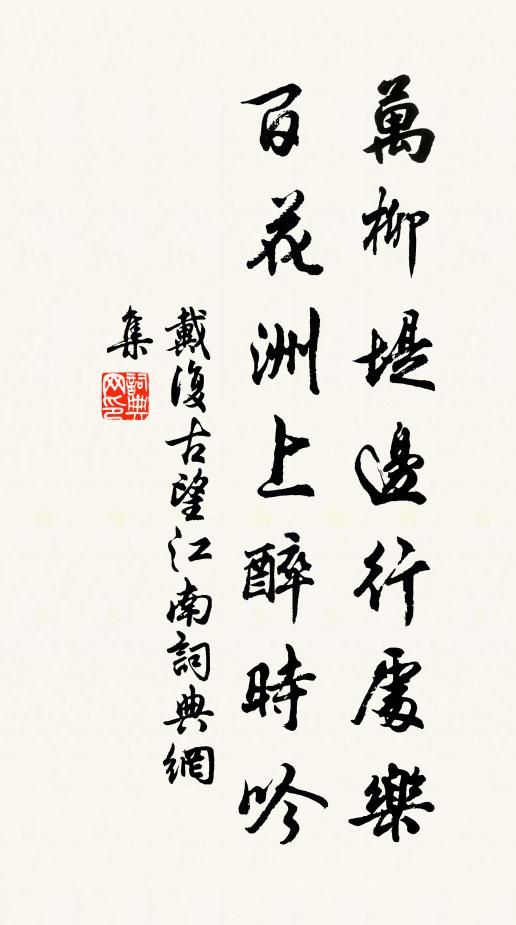 萬柳堤邊行處樂
百花洲上醉時吟
戴復古望江南詞典網
集
詞典
网印